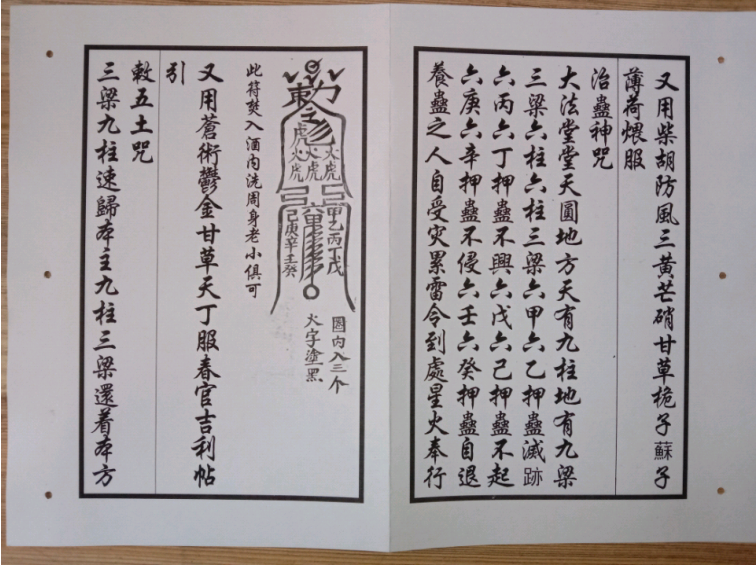 又用柴胡防風三黃芒硝甘草梔子蘇子
薄荷煨服
治蠱神咒
大法堂堂天圓地方天有九柱地有九梁
三梁六柱六柱三梁六甲六乙押蠱滅跡
六丙六丁押蠱不興六戊六己押蠱不起
六庚六辛押蠱不侵六壬六癸押蠱自退
養蠱之人自受灾累雷令到處星火奉行
圈内入三个
火字塗黑
甲乙丙丁戊
己庚辛壬癸
此符焚入酒内洗周身老小俱可
又用蒼術鬱金甘草天丁服春官吉利帖
引
敕五土咒
三梁九柱速歸本主九柱三梁還着本方